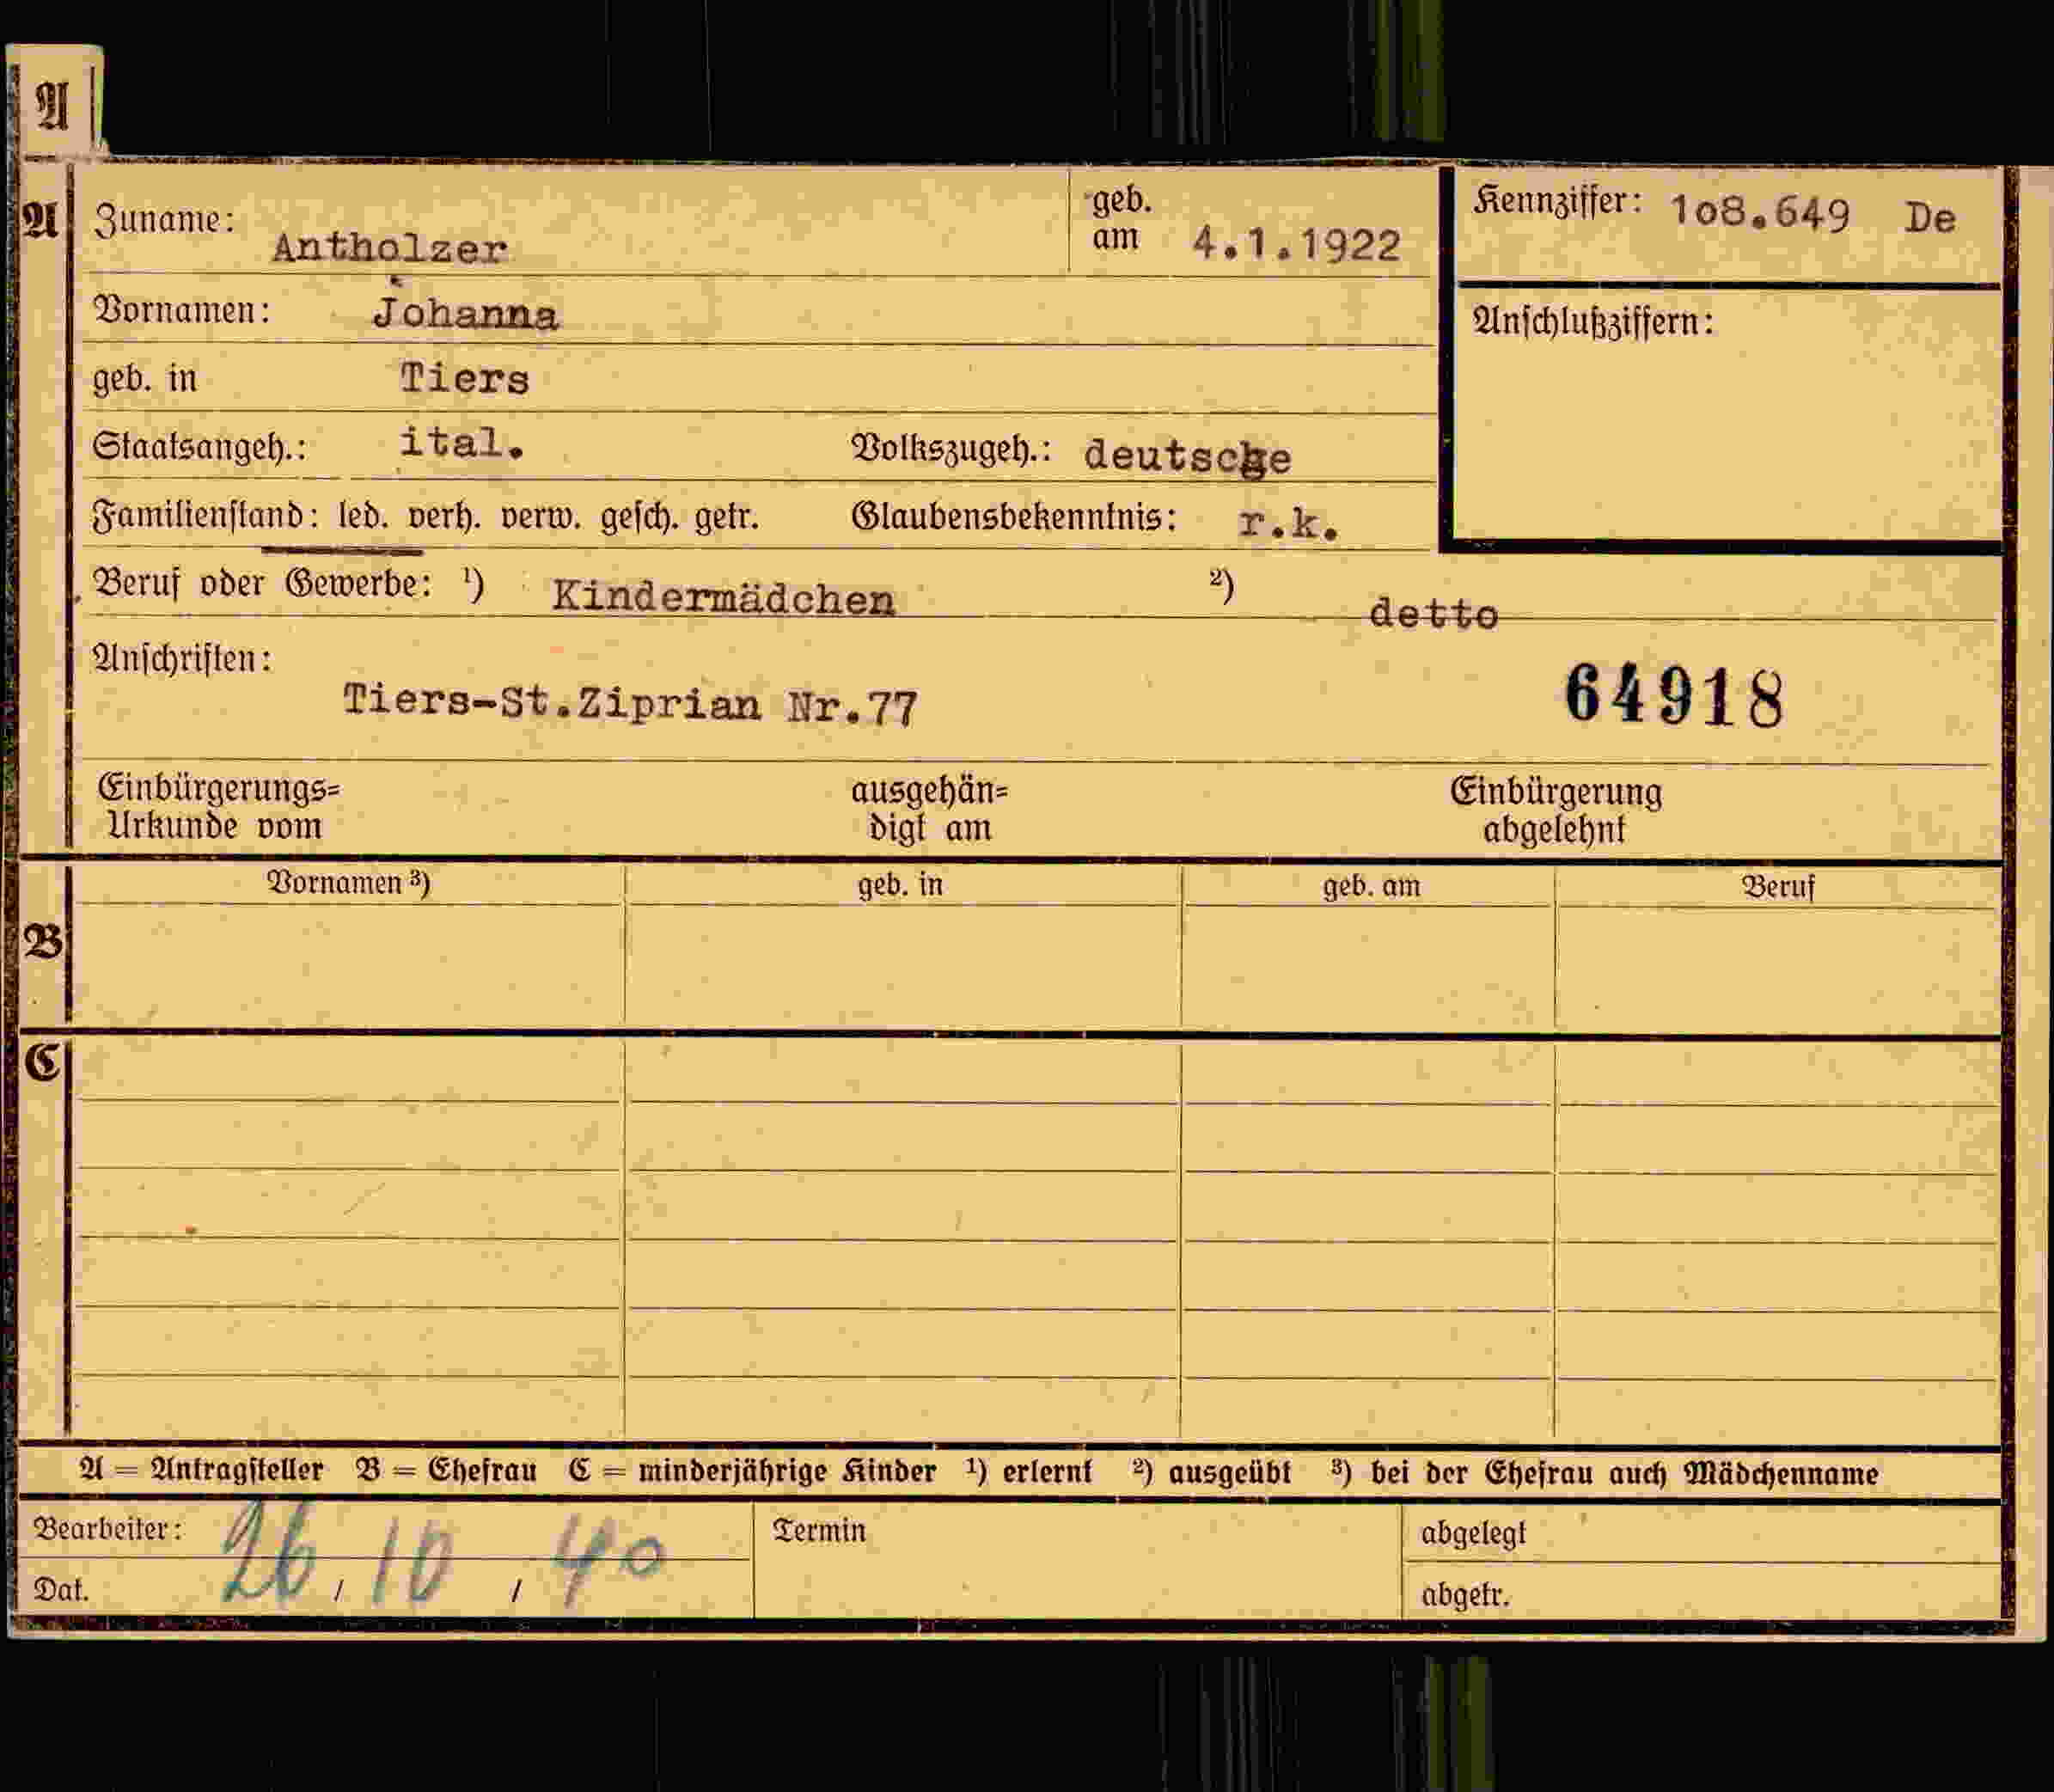 A
A Zuname: Antholzer geb. am 4.1.1922 Kennziffer: 1o8.649 De
Vornamen: Johanna Anschlußziffern:
geb. in Tiers
Staatsangeh.: ital. Volkszugeh.: deutsche
Familienstand: led. verh. verw. gesch. getr. Glaubensbekenntnis: r.k.
Beruf oder Gewerbe: ¹) Kindermädchen ²) detto
Anschriften:
Tiers-St.Ziprian Nr.77 64918
Einbürgerungs= Urkunde vom ausgehän= digt am Einbürgerung abgelehnt
Vornamen ³) geb. in geb. am Beruf
B
C
A = Antragsteller B = Ehefrau C = minderjährige Kinder ¹) erlernt ²) ausgeübt ³) bei der Ehefrau auch Mädchenname
Bearbeiter: Termin abgelegt
Dat. 26 / 10 / 40 abgetr.